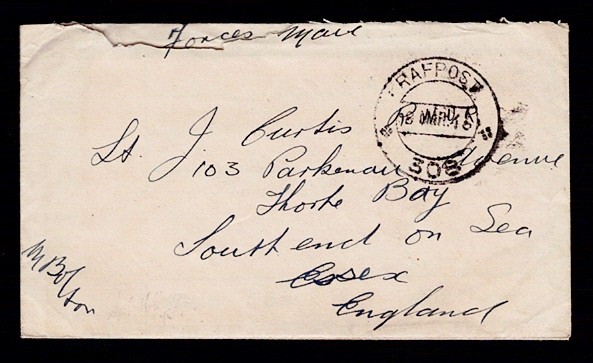 Forces Mail
RAFPOST
18 MR 46
308
Lt. J. Curtis R.N.
103 Parkenau Avenue
Thorpe Bay
Southend on Sea
Essex
England
M Bolton